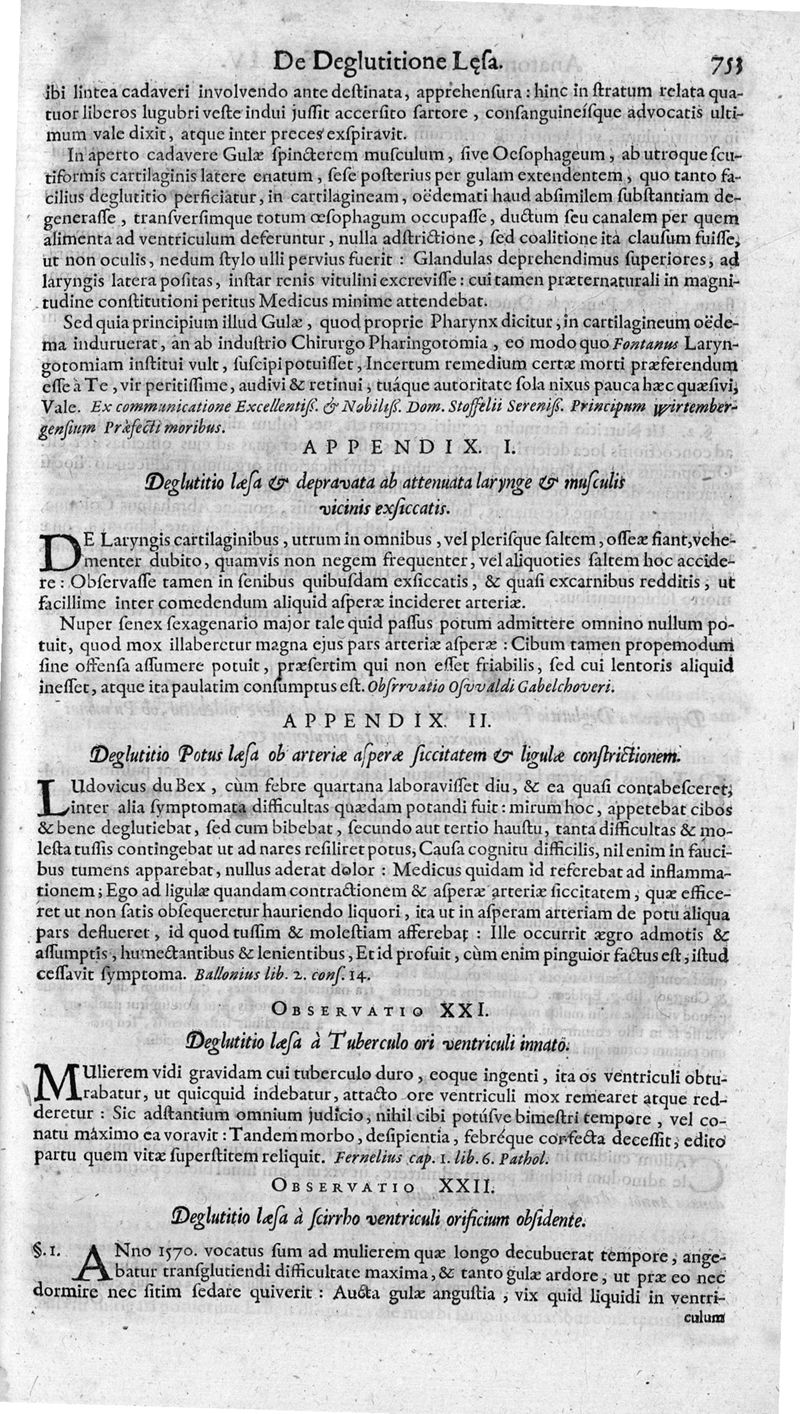 De Deglutitione Lęſa. 753
ibi lintea cadaveri involvendo ante deſtinata, apprehenſura: hinc in ſtratum relata qua-
tuor liberos lugubri veſte indui juſſit accerſito ſartore, conſanguineiſque advocatis ulti-
mum vale dixit, atque inter preces exſpiravit.
In aperto cadavere Gulæ ſpincterem muſculum, ſive Oeſophageum, ab utroque ſcu-
tiformis cartilaginis latere enatum, ſeſe poſterius per gulam extendentem, quo tanto fa-
cilius deglutitio perficiatur, in cartilagineam, oëdemati haud abſimilem ſubſtantiam de-
generaſſe, tranſverſimque totum œſophagum occupaſſe, ductum ſeu canalem per quem
alimenta ad ventriculum deferuntur, nulla adſtrictione, ſed coalitione ità clauſum fuiſſe,
ut non oculis, nedum ſtylo ulli pervius fuerit: Glandulas deprehendimus ſuperiores, ad
laryngis latera poſitas, inſtar renis vitulini excreviſſe: cui tamen præternaturali in magni-
tudine conſtitutioni peritus Medicus minime attendebat.
Sed quia principium illud Gulæ, quod proprie Pharynx dicitur, in cartilagineum oëde-
ma induruerat, an ab induſtrio Chirurgo Pharingotomia, eo modo quo Fontanus Laryn-
gotomiam inſtitui vult, ſuſcipi potuiſſet, Incertum remedium certæ morti præferendum
eſſe à Te, vir peritiſſime, audivi & retinui, tuáque autoritate ſola nixus pauca hæc quæſivi,
Vale. Ex communicatione Excellentiſſ. & Nobiliſſ. Dom. Stoffelii Sereniſſ. Principum VVirtember-
genſium Præfecti moribus.
APPENDIX. I.
Deglutitio læſa & depravata ab attenuata larynge & muſculis
vicinis exſiccatis.
DE Laryngis cartilaginibus, utrum in omnibus, vel pleriſque ſaltem, oſſeæ fiant, vehe-
menter dubito, quamvis non negem frequenter, vel aliquoties ſaltem hoc accide-
re: Obſervaſſe tamen in ſenibus quibuſdam exſiccatis, & quaſi excarnibus redditis, ut
facillime inter comedendum aliquid aſperæ incideret arteriæ.
Nuper ſenex ſexagenario major tale quid paſſus potum admittere omnino nullum po-
tuit, quod mox illaberetur magna ejus pars arteriæ aſperæ: Cibum tamen propemodum
ſine offenſa aſſumere potuit, præſertim qui non eſſet friabilis, ſed cui lentoris aliquid
ineſſet, atque ita paulatim conſumptus eſt. Obſrrvatio Oſvvaldi Gabelchoveri.
APPENDIX. II.
Deglutitio Potus læſa ob arteriæ aſperæ ſiccitatem & ligulæ conſtrictionem.
LUdovicus du Bex, cùm febre quartana laboraviſſet diu, & ea quaſi contabeſceret,
inter alia ſymptomata difficultas quædam potandi fuit: mirum hoc, appetebat cibos
& bene deglutiebat, ſed cum bibebat, ſecundo aut tertio hauſtu, tanta difficultas & mo-
leſta tuſſis contingebat ut ad nares reſiliret potus, Cauſa cognitu difficilis, nil enim in fauci-
bus tumens apparebat, nullus aderat dolor: Medicus quidam id referebat ad inflamma-
tionem; Ego ad ligulæ quandam contractionem & aſperæ arteriæ ſiccitatem, quæ effice-
ret ut non ſatis obſequeretur hauriendo liquori, ita ut in aſperam arteriam de potu aliqua
pars deflueret, id quod tuſſim & moleſtiam afferebat: Ille occurrit ægro admotis &
aſſumptis, humectantibus & lenientibus, Et id profuit, cùm enim pinguior factus eſt, iſtud
ceſſavit ſymptoma. Ballonius lib. 2. conſ. 14.
OBSERVATIO XXI.
Deglutitio læſa à Tuberculo ori ventriculi innato.
MUlierem vidi gravidam cui tuberculo duro, eoque ingenti, ita os ventriculi obtu-
rabatur, ut quicquid indebatur, attacto ore ventriculi mox remearet atque red-
deretur: Sic adſtantium omnium judicio, nihil cibi potúſve bimeſtri tempore, vel co-
natu máximo ea voravit: Tandem morbo, deſipientia, febréque confecta deceſſit, edito
partu quem vitæ ſuperſtitem reliquit. Fernelius cap. 1. lib. 6. Pathol.
OBSERVATIO XXII.
Deglutitio læſa à ſcirrho ventriculi orificium obſidente.
§. 1. ANno 1570. vocatus ſum ad mulierem quæ longo decubuerat tempore, ange-
batur tranſglutiendi difficultate maxima, & tanto gulæ ardore, ut præ eo nec
dormire nec ſitim ſedare quiverit: Aucta gulæ anguſtia, vix quid liquidi in ventri-
culum